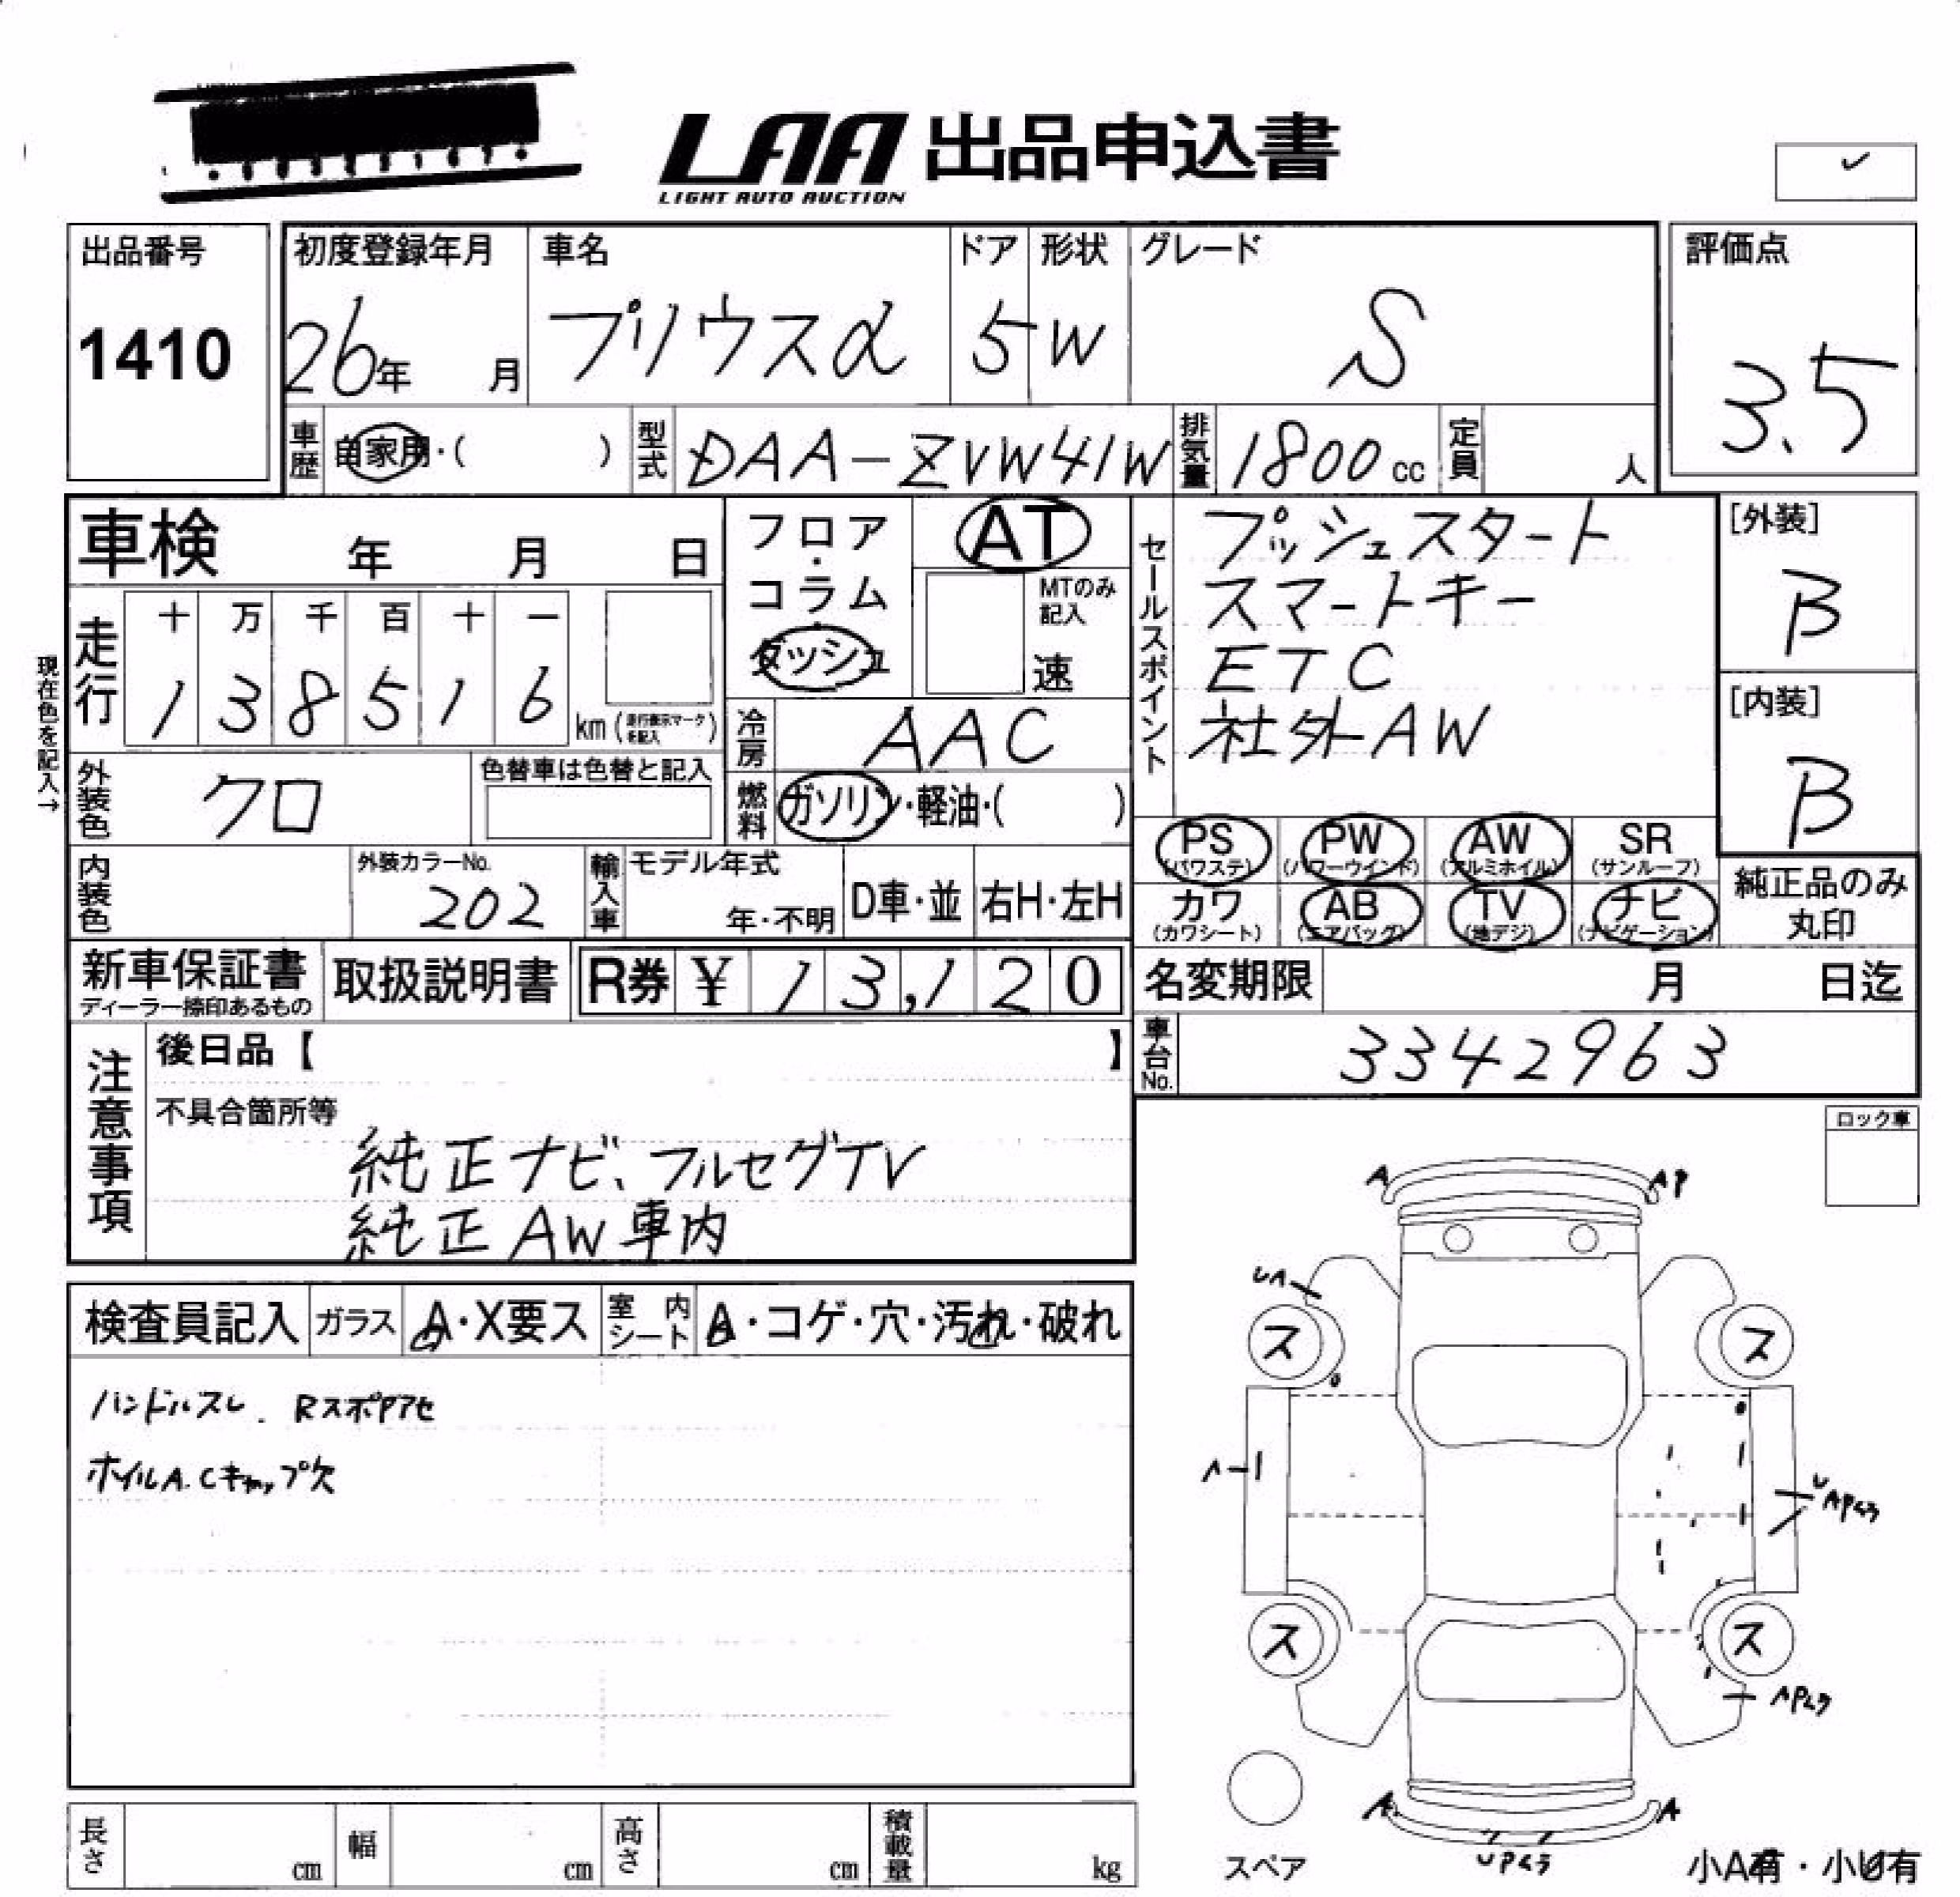 LAA 出品申込書
LIGHT AUTO AUCTION
出品番号
1410
初度登録年月
26年 月
車名
プリウスα
ドア
5
形状
W
グレード
S
評価点
3.5
車歴
自家用・( )
型式
DAA-ZVW41W
排気量
1800cc
定員
人
車検 年 月 日
フロア・コラム・ダッシュ
AT
MTのみ記入
速
現在色を記入→
走行
十 万 千 百 十 一
1 3 8 5 1 6
km(走行表示マークを記入)
冷房
AAC
燃料
ガソリン・軽油・( )
外装色
クロ
色替車は色替と記入
内装色
外装カラーNo.
202
輸入車
モデル年式
年・不明
D車・並
右H・左H
セールスポイント
プッシュスタート
スマートキー
ETC
社外AW
[外装]
B
[内装]
B
PS(パワステ)
PW(パワーウインド)
AW(アルミホイル)
SR(サンルーフ)
カワ(カワシート)
AB(エアバッグ)
TV(地デジ)
ナビ(ナビゲーション)
純正品のみ丸印
新車保証書
ディーラー捺印あるもの
取扱説明書
R券 ¥ 13,120
名変期限 月 日迄
車台No.
3342963
注意事項
後日品【 】
不具合箇所等
純正ナビ、フルセグTV
純正AW車内
検査員記入
ガラス
A・X要ス
室内シート
A・コゲ・穴・汚れ・破れ
ハンドルスレ、RスポPアセ
ホイルA.Cキャップ欠
ロック車
A
AP
UA
ス
ス
A
UAPムラ
ス
ス
APムラ
A
A
UPムラ
スペア
小A有・小U有
長さ cm
幅 cm
高さ cm
積載量 kg